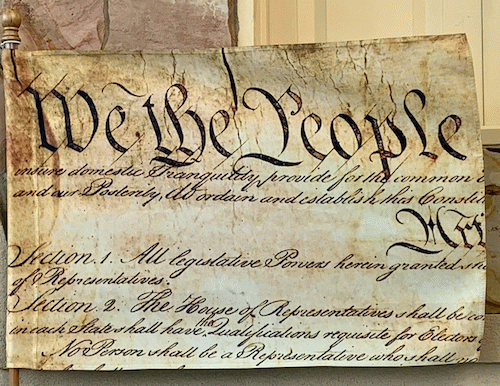 We the People
insure domestic Tranquility, provide for the common
and our Posterity, do ordain and establish this Constit
Section. 1. All legislative Powers herein granted
of Representatives.
Section. 2. The House of Representatives shall be
in each State shall have the Qualifications requisite for Electors
No Person shall be a Representative who shall